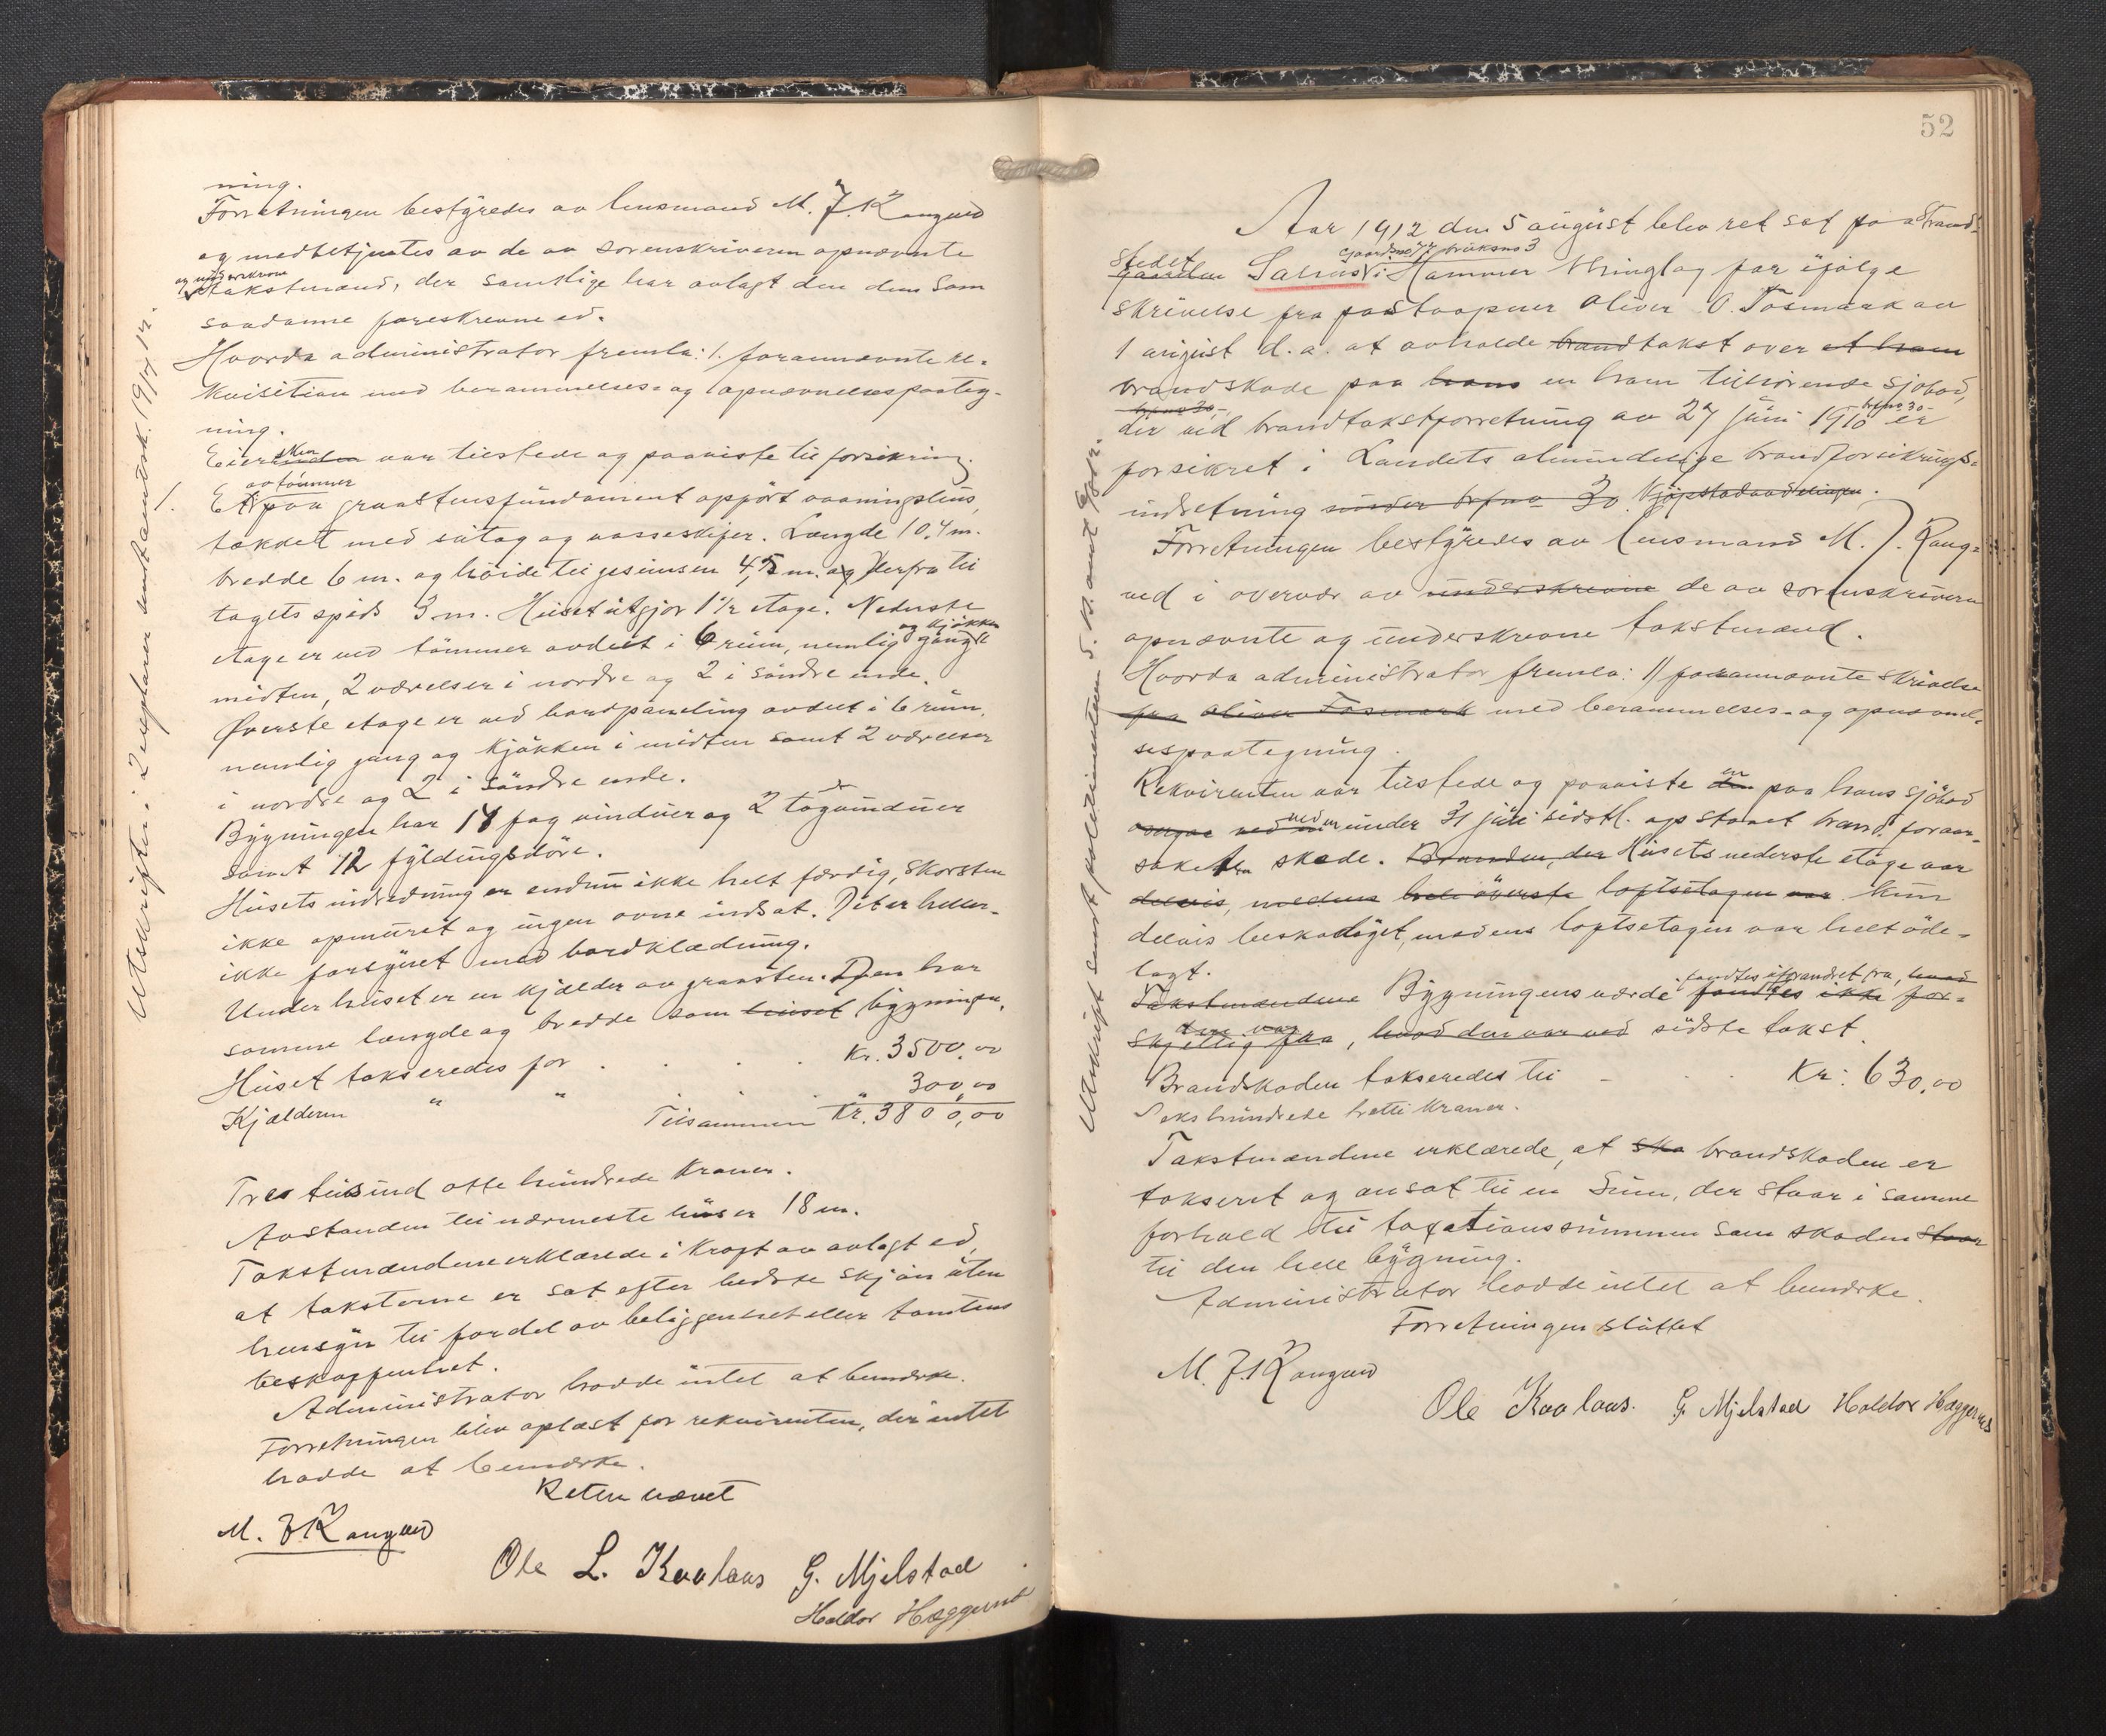 ning.
Forretningen bestyredes av lensmand M. J. Kangued
og medbetjentes av de av sorenskriveren opnævnte
og underskrevne
takstmænd, der samtlige har avlagt den dem som
saadanne foreskrevne ed.
Hvorda administrator fremla: 1. forannævnte re-
kvisition med berammelses- og opnævnelsespaateg-
ning.
Eieren var tilstede og paaviste til forsikring.
1. Et av tømmer paa graastensfundament opført vaaningshus,
tækket med sutag og vosseskifer. Længde 10,4 m.
bredde 6 m. og høide til gesimsen 4,5 m. og derfra til
tagets spids 3 m. Huset utgjør 1 1/2 etage. Nederste
etage er ved tømmer avdelt i 6 rum, nemlig gang og kjøkken i
midten, 2 værelser i nordre og 2 i søndre ende.
Øverste etage er ved bordpaneling avdelt i 6 rum,
nemlig gang og kjøkken i midten samt 2 værelser
i nordre og 2 i søndre ende.
Bygningen har 14 fag vinduer og 2 tagvinduer
samt 12 fyldingsdøre.
Husets indredning er endnu ikke helt færdig, skorsten
ikke opmuret og ingen ovne indsat. Det er heller-
ikke forsynet med bordklædning.
Under huset er en kjælder av graasten. Den har
samme længde og bredde som huset bygningen.
Huset takseredes for . . . Kr. 3500,00
Kjælderen " " . . 300,00
Tilsammen Kr. 3800,00
Tre tusind otte hundrede kroner.
Avstanden til nærmeste hus er 18 m.
Takstmændene erklærede i kraft av avlagt ed,
at taksterne er sat efter bedste skjøn uten
hensyn til fordel av beliggenhet eller tomtens
beskaffenhet.
Administrator hadde intet at bemerke.
Forretningen blev oplæst for rekvirenten, der intet
hadde at bemerke.
Retten hævet
M. J. Kangued
Ole L. Kvalaas G. Mjelstad
Haldor Heggernes
Utskrifter i 2 explarer
52
Aar 1912 den 5 august blev ret sat paa Strand-
stedet gaarden Salhus gaardsno bruksno 3 i Hammer thinglag for ifølge
skrivelse fra postaapner Oliver O. Tosmark av
1 august d.a. at avholde brandtakst over et ham
brandskade paa hans en ham tilhørende sjøbod,
der ved brandtakstforretning av 27 juni 1910 er
forsikret i Landets almindelige brandforsikrings-
indretning under 30 Kjøpstadavdelingen.
Forretningen bestyredes av lensmand M. J. Kang-
ued i overvær av underskrevne de av sorenskriveren
opnævnte og underskrevne takstmænd.
Hvorda administrator fremla: 1) forannævnte skrivelse
fra Oliver Tosmark med berammelses- og opnævnel-
sespaategning.
Rekvirenten var tilstede og paaviste den en paa hans sjøbod
ved en under 31 juli sidstl. opstaaet brand foraar-
saket skade. Branden, der Husets nederste etage var
delvis, medens hele øverste loftsetagen var kun
delvis beskadiget, medens loftsetagen var helt øde-
lagt.
Takstmændene Bygningens værde fandtes uforandret fra, hvad
fandtes ikke for-
skjellig fra, hvad den var ved sidste takst.
den var
Brandskaden takseredes til - . . Kr: 630,00
Sekshundrede tretti kroner.
Takstmændene erklærede, at ska brandskaden er
takseret og ansat til en sum, der staar i samme
forhold til taxationssummen som skaden staar
til den hele bygning.
Administrator hadde intet at bemerke.
Forretningen sluttet
M. J. Kangued
Ole Kvalaas. G. Mjelstad Haldor Heggernes